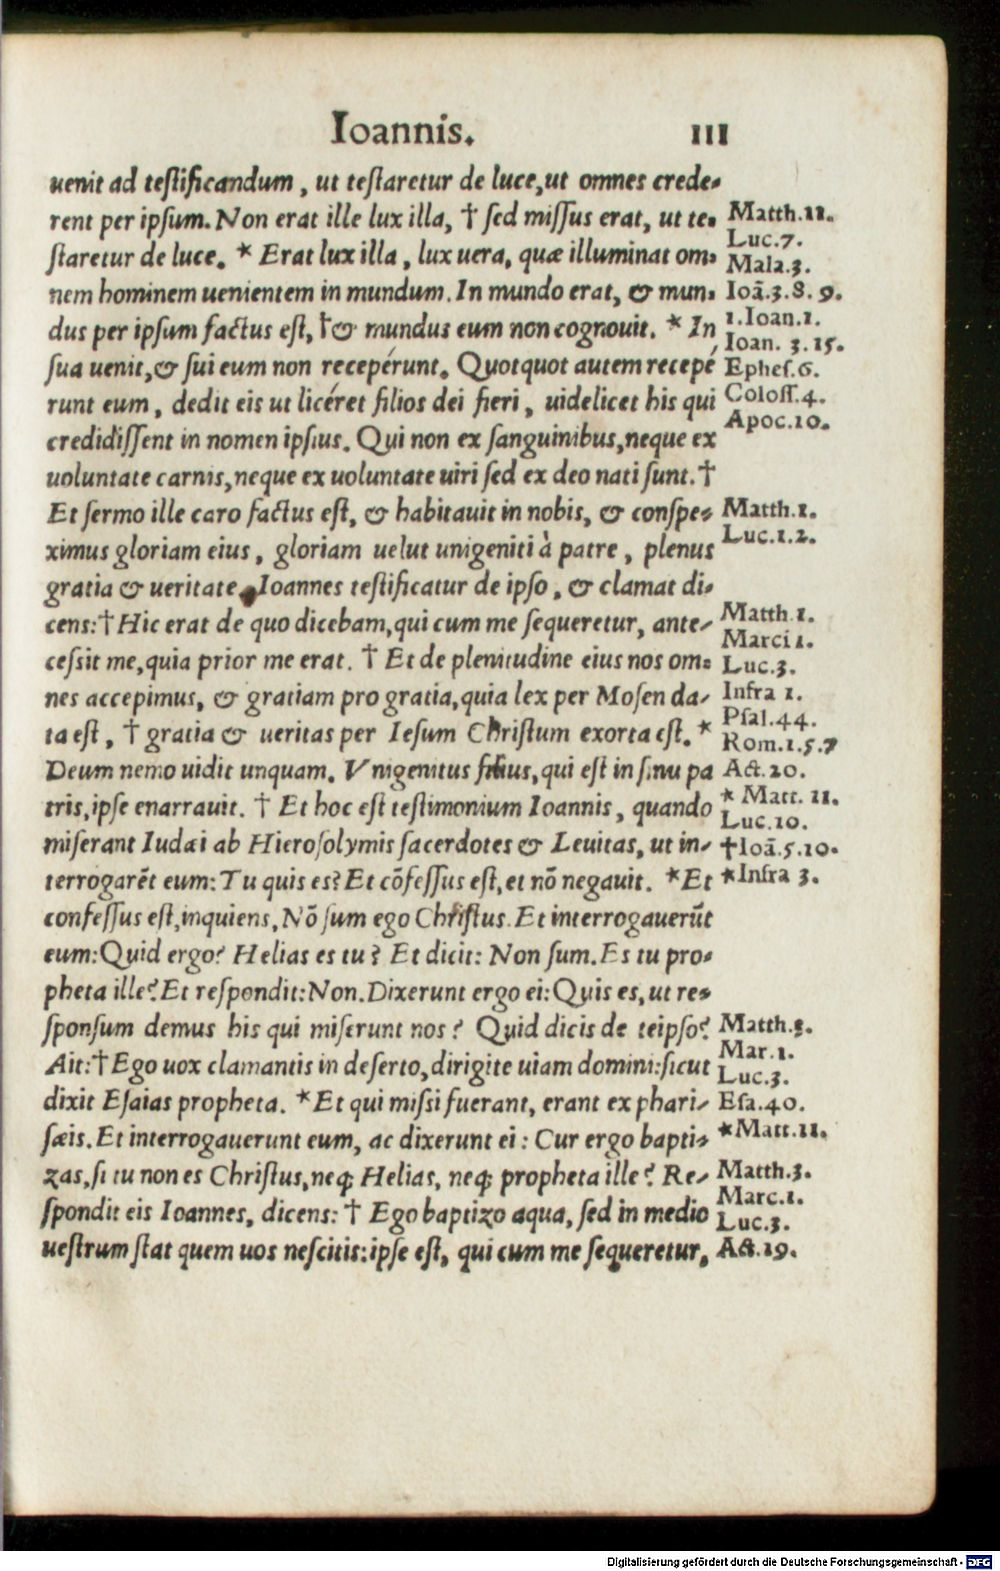 Ioannis.
III
uenit ad testificandum, ut testaretur de luce, ut omnes crede-
rent per ipsum. Non erat ille lux illa, † sed missus erat, ut te-
staretur de luce. * Erat lux illa, lux uera, quæ illuminat om-
nem hominem uenientem in mundum. In mundo erat, & mun-
dus per ipsum factus est, †& mundus eum non cognouit. * In
sua uenit, & sui eum non recepérunt. Quotquot autem recepé
runt eum, dedit eis ut licéret filios dei fieri, uidelicet his qui
credidissent in nomen ipsius. Qui non ex sanguinibus, neque ex
uoluntate carnis, neque ex uoluntate uiri sed ex deo nati sunt. †
Et sermo ille caro factus est, & habitauit in nobis, & conspe-
ximus gloriam eius, gloriam uelut unigeniti à patre, plenus
gratia & ueritate. Ioannes testificatur de ipso, & clamat di-
cens: † Hic erat de quo dicebam, qui cum me sequeretur, ante-
cessit me, quia prior me erat. † Et de plenitudine eius nos om-
nes accepimus, & gratiam pro gratia, quia lex per Mosen da-
ta est, † gratia & ueritas per Iesum Christum exorta est. *
Deum nemo uidit unquam. Vnigenitus filius, qui est in sinu pa
tris, ipse enarrauit. † Et hoc est testimonium Ioannis, quando
miserant Iudæi ab Hierosolymis sacerdotes & Leuitas, ut in-
terrogarẽt eum: Tu quis es? Et cõfessus est, et nõ negauit. * Et
confessus est, inquiens, Nõ sum ego Christus. Et interrogauerũt
eum: Quid ergo? Helias es tu? Et dicit: Non sum. Es tu pro-
pheta ille? Et respondit: Non. Dixerunt ergo ei: Quis es, ut re-
sponsum demus his qui miserunt nos? Quid dicis de teipso?
Ait: † Ego uox clamantis in deserto, dirigite uiam domini: sicut
dixit Esaias propheta. * Et qui missi fuerant, erant ex phari-
sæis. Et interrogauerunt eum, ac dixerunt ei: Cur ergo bapti-
zas, si tu non es Christus, neq; Helias, neq; propheta ille? Re-
spondit eis Ioannes, dicens: † Ego baptizo aqua, sed in medio
uestrum stat quem uos nescitis: ipse est, qui cum me sequeretur,
Matth.11.
Luc.7.
Mala.3.
Ioã.3.8.9.
1.Ioan.1.
Ioan. 3.15.
Ephes.6.
Coloss.4.
Apoc.10.
Matth.1.
Luc.1.2.
Matth.1.
Marci 1.
Luc.3.
Infra 1.
Psal.44.
Rom.1.5.7
Act.20.
* Matt. 11.
Luc.10.
†Ioã.5.10.
*Infra 3.
Matth.3.
Mar.1.
Luc.3.
Esa.40.
*Matt.11.
Matth.3.
Marc.1.
Luc.3.
Act.19.
Digitalisierung gefördert durch die Deutsche Forschungsgemeinschaft - DFG